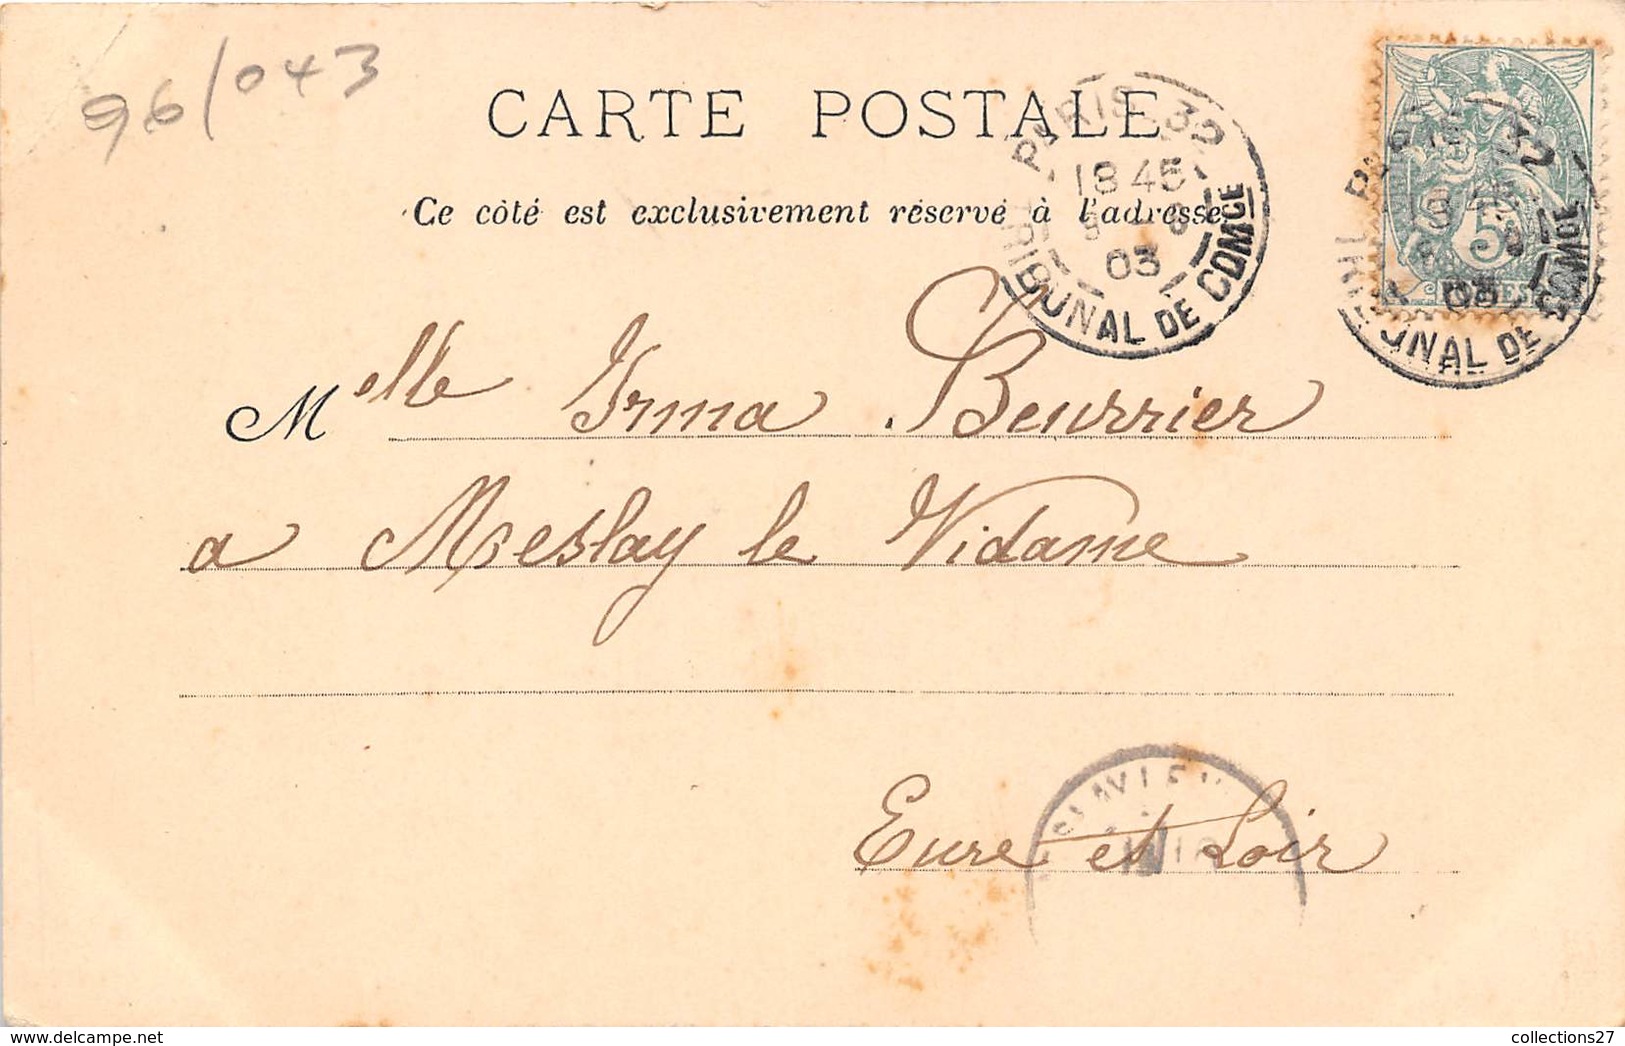 96/043
CARTE POSTALE
Ce côté est exclusivement réservé à l'adresse
PARIS 32
18 45
03
TRIBUNAL DE COMCE
5
Melle Irma Beurrier
a Meslay le Vidame
Eure et Loir
delcampe.net
collections27